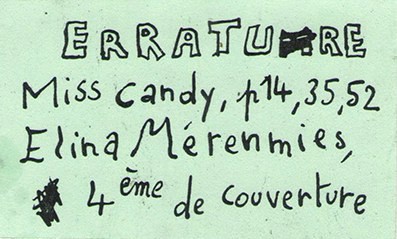 ERRATURE
Miss Candy, p14,35,52
Elina Mérenmies,
4ème de couverture